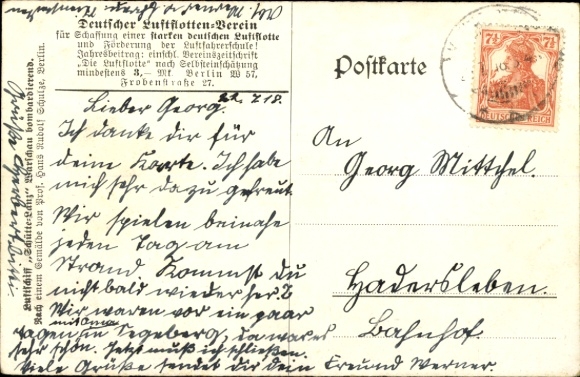 Deutscher Luftflotten-Verein
für Schaffung einer starken deutschen Luftflotte
und Förderung der Luftfahrerschule!
Jahresbeitrag: einschl. Vereinszeitschrift
„Die Luftflotte" nach Selbsteinschätzung
mindestens 3,— Mk. Berlin W 57,
Frobenstraße 27.
Luftschiff „Schütte-Lanz" Warschau bombardierend.
Nach einem Gemälde von Prof. Hans Rudolf Schulze, Berlin.
Postkarte
7½ 7½
DEUTSCHES REICH
7.18.
Lieber Georg.
Ich danke dir für
deine Karte. Ich habe
mich sehr dazu gefreut
Wir spielen beinahe
jeden Tag am
Strand Kommst du
nicht bald wieder her?
Wir waren vor ein paar
mit Oma
Tagen in Segeberg, da war es
sehr schön. Jetzt muß ich schließen.
Viele Grüße sendet dir dein Freund Werner.
An
Georg Mittchel.
Hadersleben.
Bahnhof.